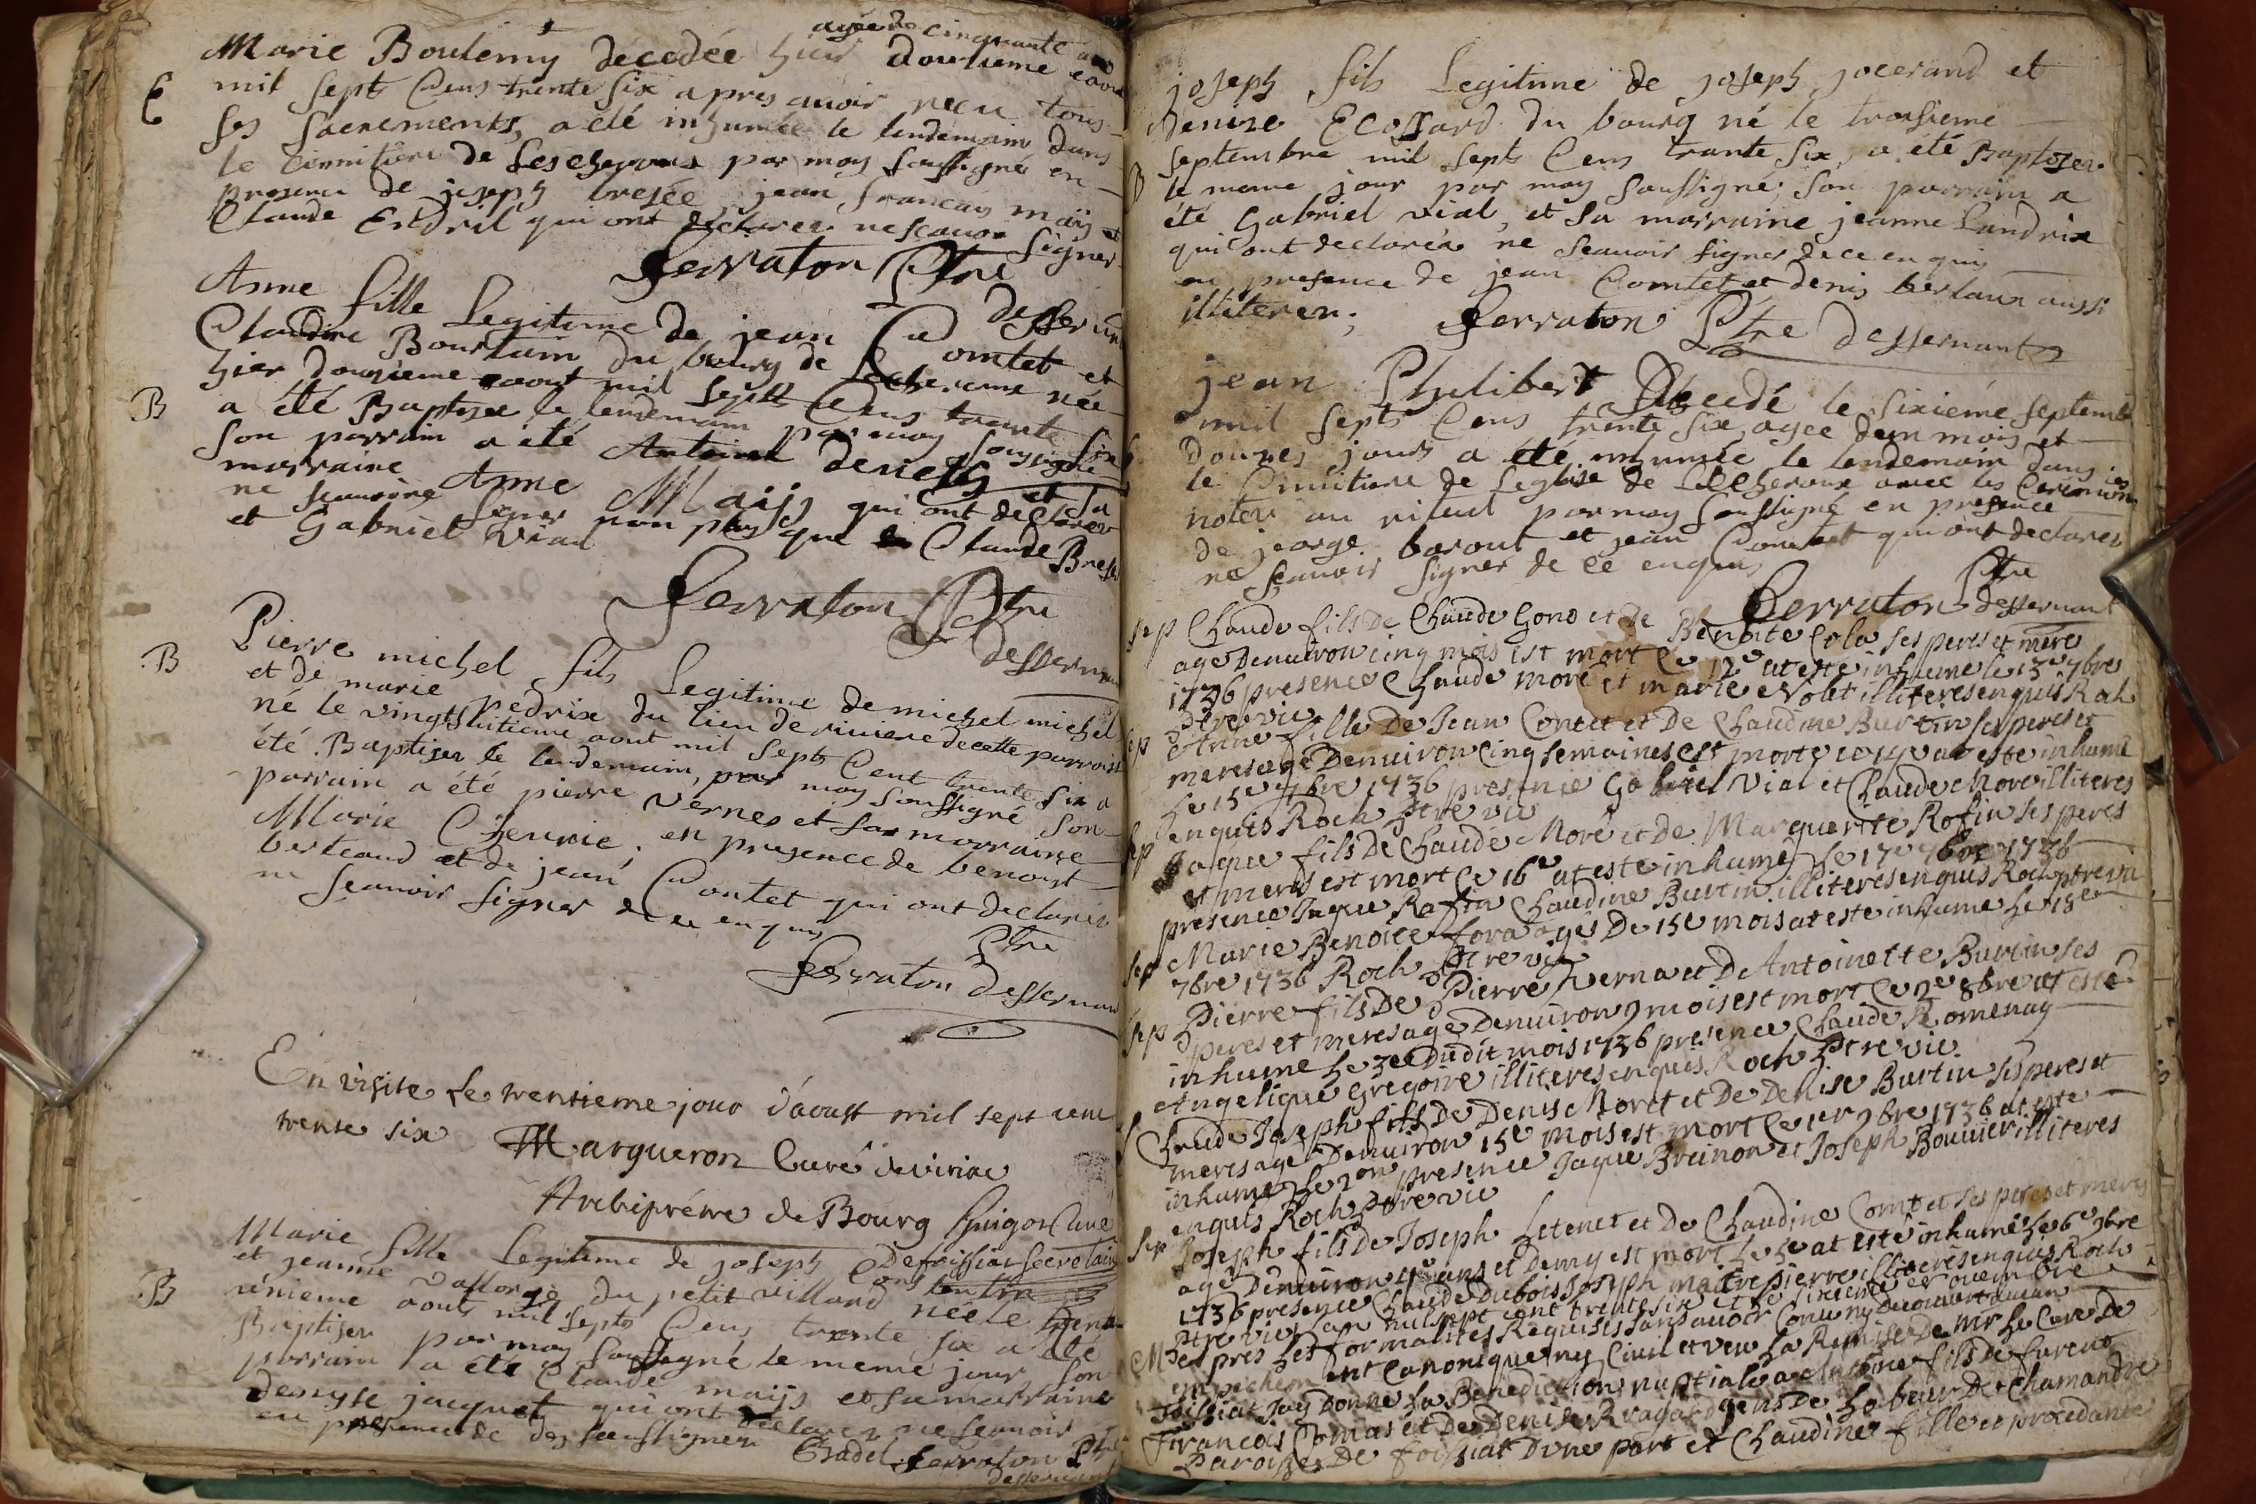 agée de cinquante ans
Marie Boulemy décedée hier douzieme aout
E
mil sept Cens trente six apres avoir reçu tous
ses sacrements, a été inhumée le lendemain dans
le cimmitiere de Lescheroux par moy soussigné en
presence de joseph bresée, jean francays maijs et
Claude qui ont declarer ne scavoir signer
Ferraton Ptre
desservant
Anne fille Legitime de jean Comtet et
Claudine Bourtain du bourg de Lecheroux née
hier douzieme aout mil septs Cens trante six
B
a été Baptisée le lendemain par moy soussigné
son parrain a été Antoine et sa
marraine Anne Maijs qui ont declarer
ne scavoire signer non plus que Claude Bresé
et Gabriel Vial
Ferraton Ptre
desservant
B
Pierre michel fils Legitime de michel michel
et de marie pedrix du lieu de riviere de cette parroisse
né le vingthuitieme aout mil septs Cent trente six a
été Baptiser le lendemain, par moy soussigné son
parrain a été pierre vernes et sa marraine
Marie Cheuric, en presence de benoist
berteaud et de jean Contet qui ont declarer
ne scavoir signer de ce enquis
Ptre
Ferraton desservant
En visite Le trentieme jour d'aoust mil sept cent
trente six Margueron Curé de viriat
Archiprêtre de Bourg Guigot Curé
De foissiat secretaire
Marie fille legitime de joseph
et jeanne du petit villard née le tren
B
tenieme aout mil septs Cens trante six a été
Baptiser par moy soussigné le meme jour, son
parrain a été Claude maijs et sa marraine
denyse jacquet qui ont declarer ne scavoir
en presence de des soussignez Badel Ferraton Ptre
desservant
joseph fils Legitime de joseph jocerand et
denize Ecossard du bourg né le troisieme
septembre mil septs Cens trante six, a été Baptizer
B
le meme jour par moy soussigné son parrain a
été Gabriel vial, et sa marraine jeanne Landrix
qui ont declarér ne scavoir signer de ce enquis
en presence de jean Comtet et denis berlaux aussi
illiterez; Ferraton Ptre desservant
jean Philibert Decedé le sixieme septembre
mil septs Cens trente six, agee d'un mois et
douzes jours a été inhumée le lendemain dans
le Cimitiere de Leglise de Lecheroux avec les Ceremonies
notez au rituel par moy soussigné en presence
de jeorge barout et jean Comtet qui ont declarer
ne scavoir signer de ce enquis
Ferraton Ptre desservant
sep Claude fils De Claude Gono et de Benoite Cola ses peres et mere
age Denviron cinq mois est mort Le 12e at este inhumé le 13e 7bre
1736 presence Claude moré et marie illiteres enquis Roch
Ptre vic
sep Anne fille De Jean Contet et De Claudine Burtin ses peres et
meres age Denviron Cinq semaines est morte Le 14e at este inhume
Le 15e 7bre 1736 presence Gabriel Vial et Claude More illiteres
enquis Roch Ptre vic
sep Jaque fils De Claude Moré et de Marguerite Rofin ses peres
et meres est mort Le 16e at este inhumé Le 17e 7bre 1736
presence Jaque Rofin Claudine Burtin illiteres enquis Roch ptre vic
sep Marie Benoite fora agés De 15e mois at este inhume Le 18e
7bre 1736 Roch Ptre vic
sep Pierre fils De Pierre Verna et D Antoinette Burtin ses
peres et meres age Denviron 9 mois est mort Le 2e 8bre at esté
inhume Le 3e Dudit mois 1736 presence Claude Romenay
Angelique Gregoire illiteres enquis Roch Ptre vic
Claude Joseph fils de Denis Moret et De Denise Burtin ses peres et
meres age Denviron 15e mois est mort Le 1er 9bre 1736 at este
inhume Le 2on presence Jaque Brunon et Joseph Bouvier illiteres
enquis Roch Ptre vic
sep Joseph fils De Joseph Letenet et De Claudine Comtet ses peres et meres
age Denviron 4e ans et demy est mort Le 5e at esté inhumé Le 6e 9bre
1736 presence Claude Dubois Joseph maitrepierre illiteres enquis Roch
Ptre vic
M Lan mil sept cent trente six et le sixieme novembre
apres Les formalites Requises sans avoir Connu ny Decouvert aucun
empechement Canonique ny Civil et veu La Remise De Mr Le Curé De
foissiat Jay Donne La Benediction nuptiale a Antoine fils de furent
Francois Comas et De Denise gens De Labeur De Chamandre
Paroisse De foissiat Dune part et Claudine fille et procedante